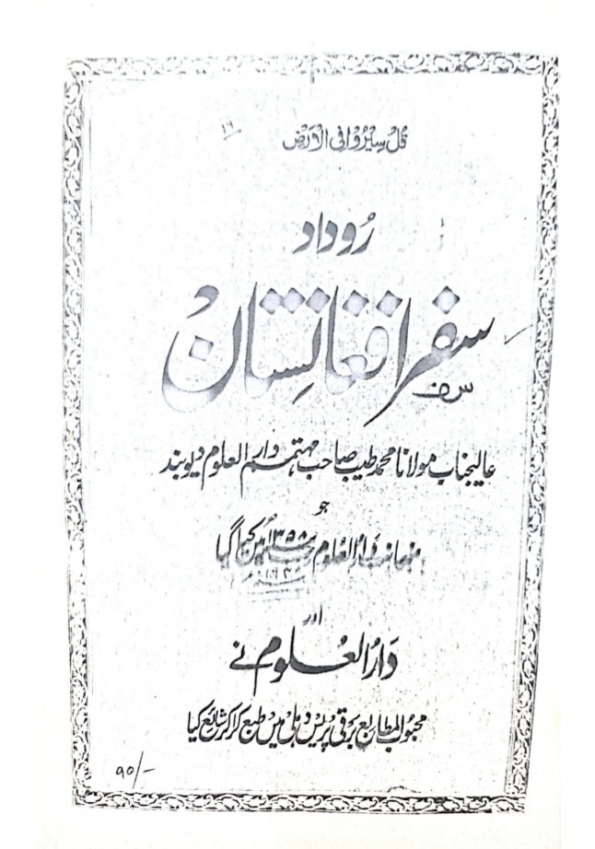 ۱۶ قُل سِیرُوا فِی الْاَرْضِ
رُوداد
سفر افغانستان
عالیجناب مولانا محمد طیب صاحب مہتمم دارالعلوم دیوبند
جو
منجانب دارالعلوم ۱۳۵۸ھ میں کیا گیا
اور
دارُالعُلوم نے
محبوب المطابع برقی پریس دہلی میں طبع کرا کر شائع کیا
۹۰/-